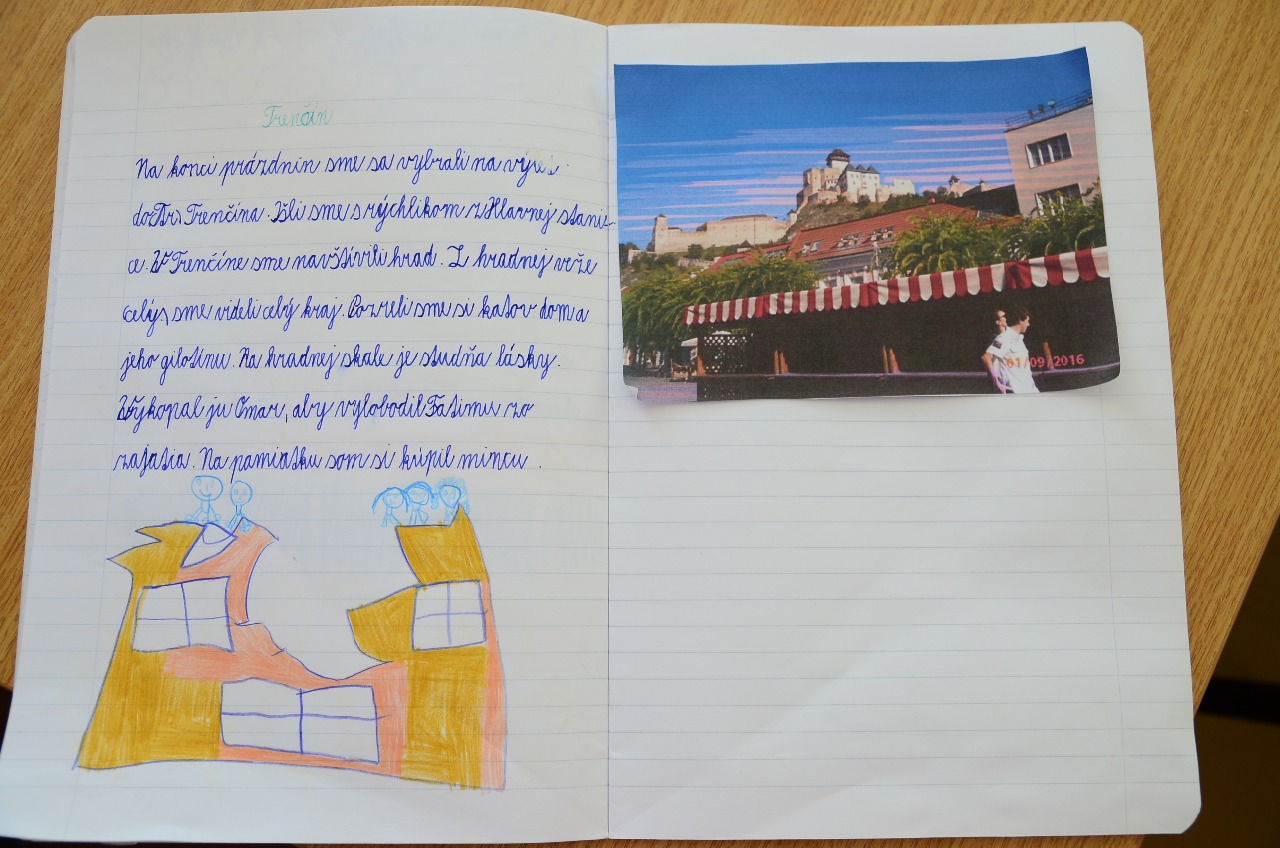 Trenčín
Na konci prázdnin sme sa vybrali na výlet
do Trenčína. Išli sme s rýchlikom z Hlavnej stani-
ce. V Trenčíne sme navštívili hrad. Z hradnej veže
celý sme videli celý kraj. Pozreli sme si katov dom a
jeho gilotínu. Na hradnej skale je studňa lásky.
Vykopal ju Omar, aby vylobodil Fatimu zo
zajatia. Na pamiatku som si kúpil mincu.
01/09/2016